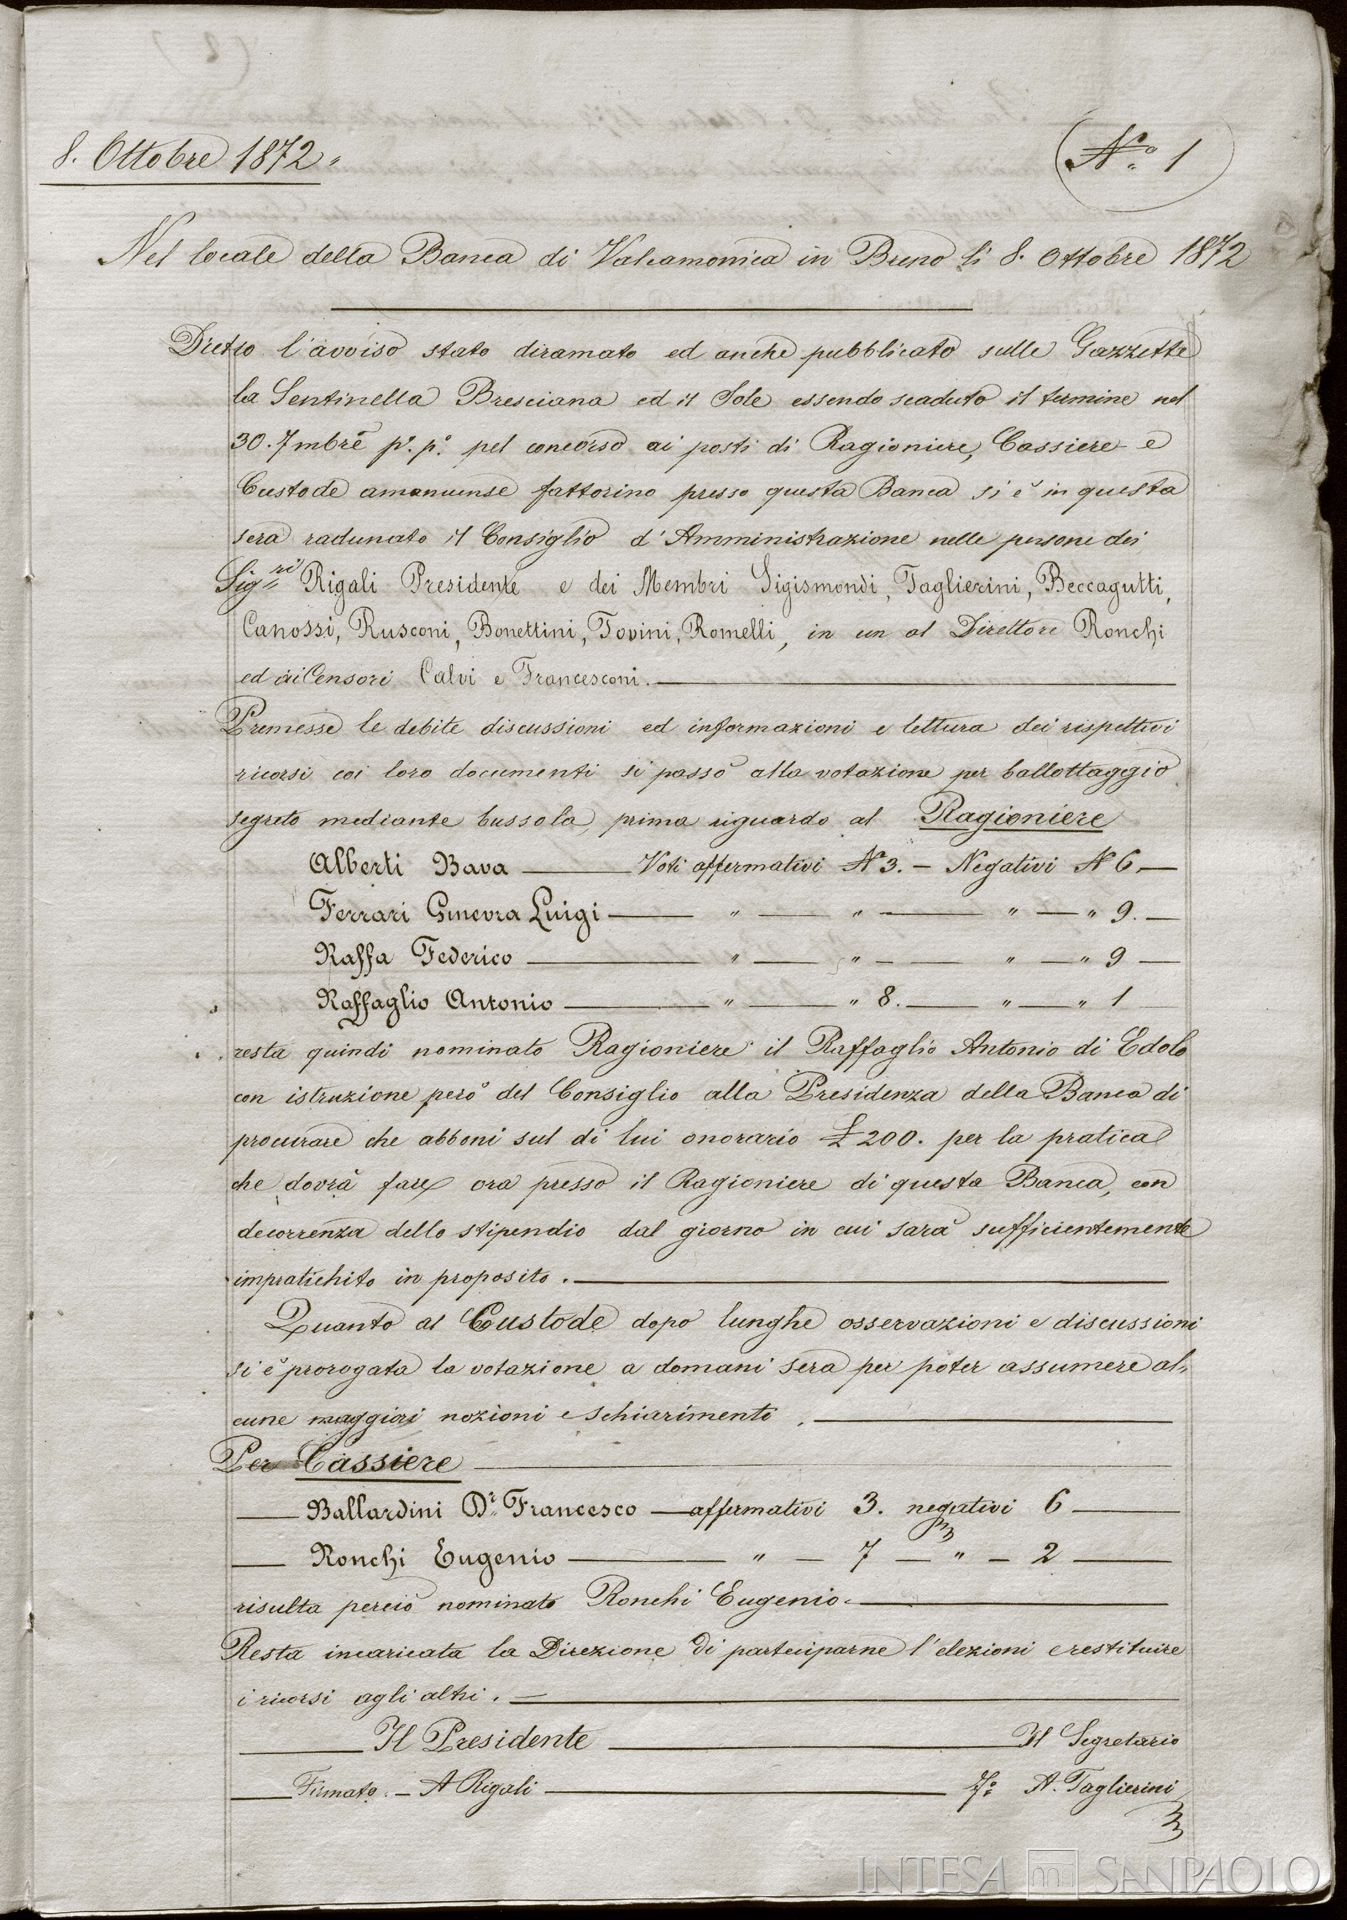 8. Ottobre 1872.
(N.º 1)
Nel locale della Banca di Valcamonica in Breno li 8. Ottobre 1872
Dietro l'avviso stato diramato ed anche pubblicato sulle Gazzette
la Sentinella Bresciana ed il Sole essendo scaduto il termine nel
30. 7mbre p.º p.º pel concorso ai posti di Ragioniere, Cassiere e
Custode amanuense fattorino presso questa Banca si è in questa
sera radunato il Consiglio d'Amministrazione nelle persone dei
Sig.ri Rigali Presidente e dei Membri Sigismondi, Taglierini, Beccagutti,
Canossi, Rusconi, Bonettini, Tovini, Romelli, in un al Direttore Ronchi
ed ai Censori Calvi e Francesconi.
Premesse le debite discussioni ed informazioni e lettura dei rispettivi
ricorsi coi loro documenti si passò alla votazione per ballottaggio
segreto mediante bussola, prima riguardo al Ragioniere
Alberti Bava — Voti affermativi N 3. — Negativi N 6 —
Ferrari Ginevra Luigi — " — " — " — " 9. —
Raffa Federico — " — " — " — " 9 —
Raffaglio Antonio — " — " 8. — " — " 1
resta quindi nominato Ragioniere il Raffaglio Antonio di Edolo
con istruzione però del Consiglio alla Presidenza della Banca di
procurare che abboni sul di lui onorario £ 200. per la pratica
che dovrà fare ora presso il Ragioniere di questa Banca, con
decorrenza dello stipendio dal giorno in cui sarà sufficientemente
impratichito in proposito.
Quanto al Custode dopo lunghe osservazioni e discussioni
si è prorogata la votazione a domani sera per poter assumere al„
cune maggiori nozioni e schiarimenti.
Per Cassiere
Ballardini Dr. Francesco — affermativi 3. negativi 6 —
Ronchi Eugenio — " — 7 — " — 2 —
risulta perciò nominato Ronchi Eugenio.
Resta incaricata la Direzione di parteciparne l'elezioni e restituire
i ricorsi agli altri. —
Il Presidente — Il Segretario
Firmato. — A Rigali — F.º A. Taglierini
INTESA SANPAOLO